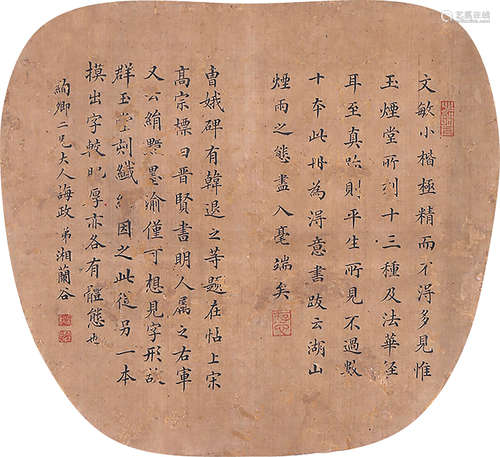 文敏小楷極精而不得多見惟
玉煙堂所刻十三種及法華經
耳至真跡則平生所見不過數
十本此冊為得意書跋云湖山
煙雨之態盡入毫端矣
曹娥碑有韓退之等題在帖上宋
高宗標曰晋賢書明人屬之右軍
又云絹黯墨渝僅可想見字形故
群玉堂刻纖 因之此從另一本
摸出字較肥厚亦各有體態也
絢卿二兄大人誨政弟湘蘭谷